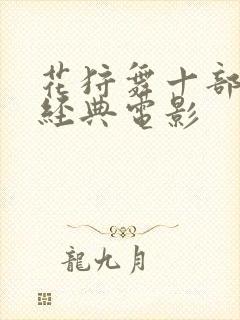 花狩舞十部
經典電影
龍九月